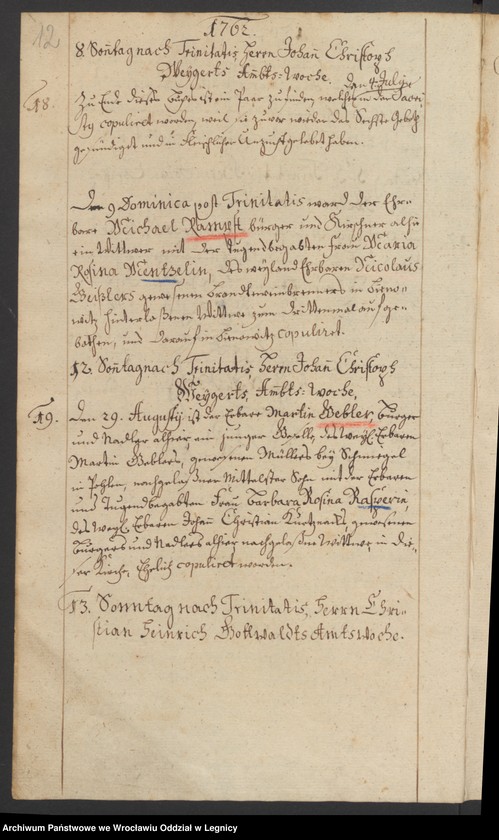 12
1762.
8. Soñtag nach Trinitatis, Herrn Johañ Christoph
Weygerts Ambts-Woche.
den 4 July
18.
Zu Ende dieses ist ein Paar zu finden, welches in der Sacri-
stey copuliret worden, weil sie zuvor wieder das Sechste Geboth
gesündiget und in fleischlicher Unzucht gelebet haben.
Den 9 Dominica post Trinitatis ward der Ehr-
bare Michael Rampft bürger und Kirschner alhier
ein Wittwer mit der Tugendbegabten Frau Maria
Rosina Wentzelin, des weyland Ehrbaren Nicolaus
gewesenen Brandtweinbrenners in
witz hinterlaßenen Wittwe zum Drittenmal aufge-
bothen, und darauf in copuliret.
12. Soñtag nach Trinitatis, Herrn Johañ Christoph
Weygerts, Ambts-Woche.
19.
Den 29. Augusty ist der Erbare Martin Gebler, Bürger
und Nadler alhier, ein junger Geselle, des weyl. Erbaren
Martin Geblers, gewesenen Müllers bey Schmiegel
in Pohlen, nachgelaßner Mittelster Sohn mit der Erbaren
und Tugendbegabten Frau Barbara Rosina
des weyl. Erbaren Johañ Christian gewesenen
Bürgers und Nadlers alhier nachgelaßene Wittwe, in die-
ser Kirche, Ehelich copuliret worden.
13. Sonntag nach Trinitatis, Herrn Chri-
stian Heinrich Gottwaldts Amtswoche.
Archiwum Państwowe we Wrocławiu Oddział w Legnicy